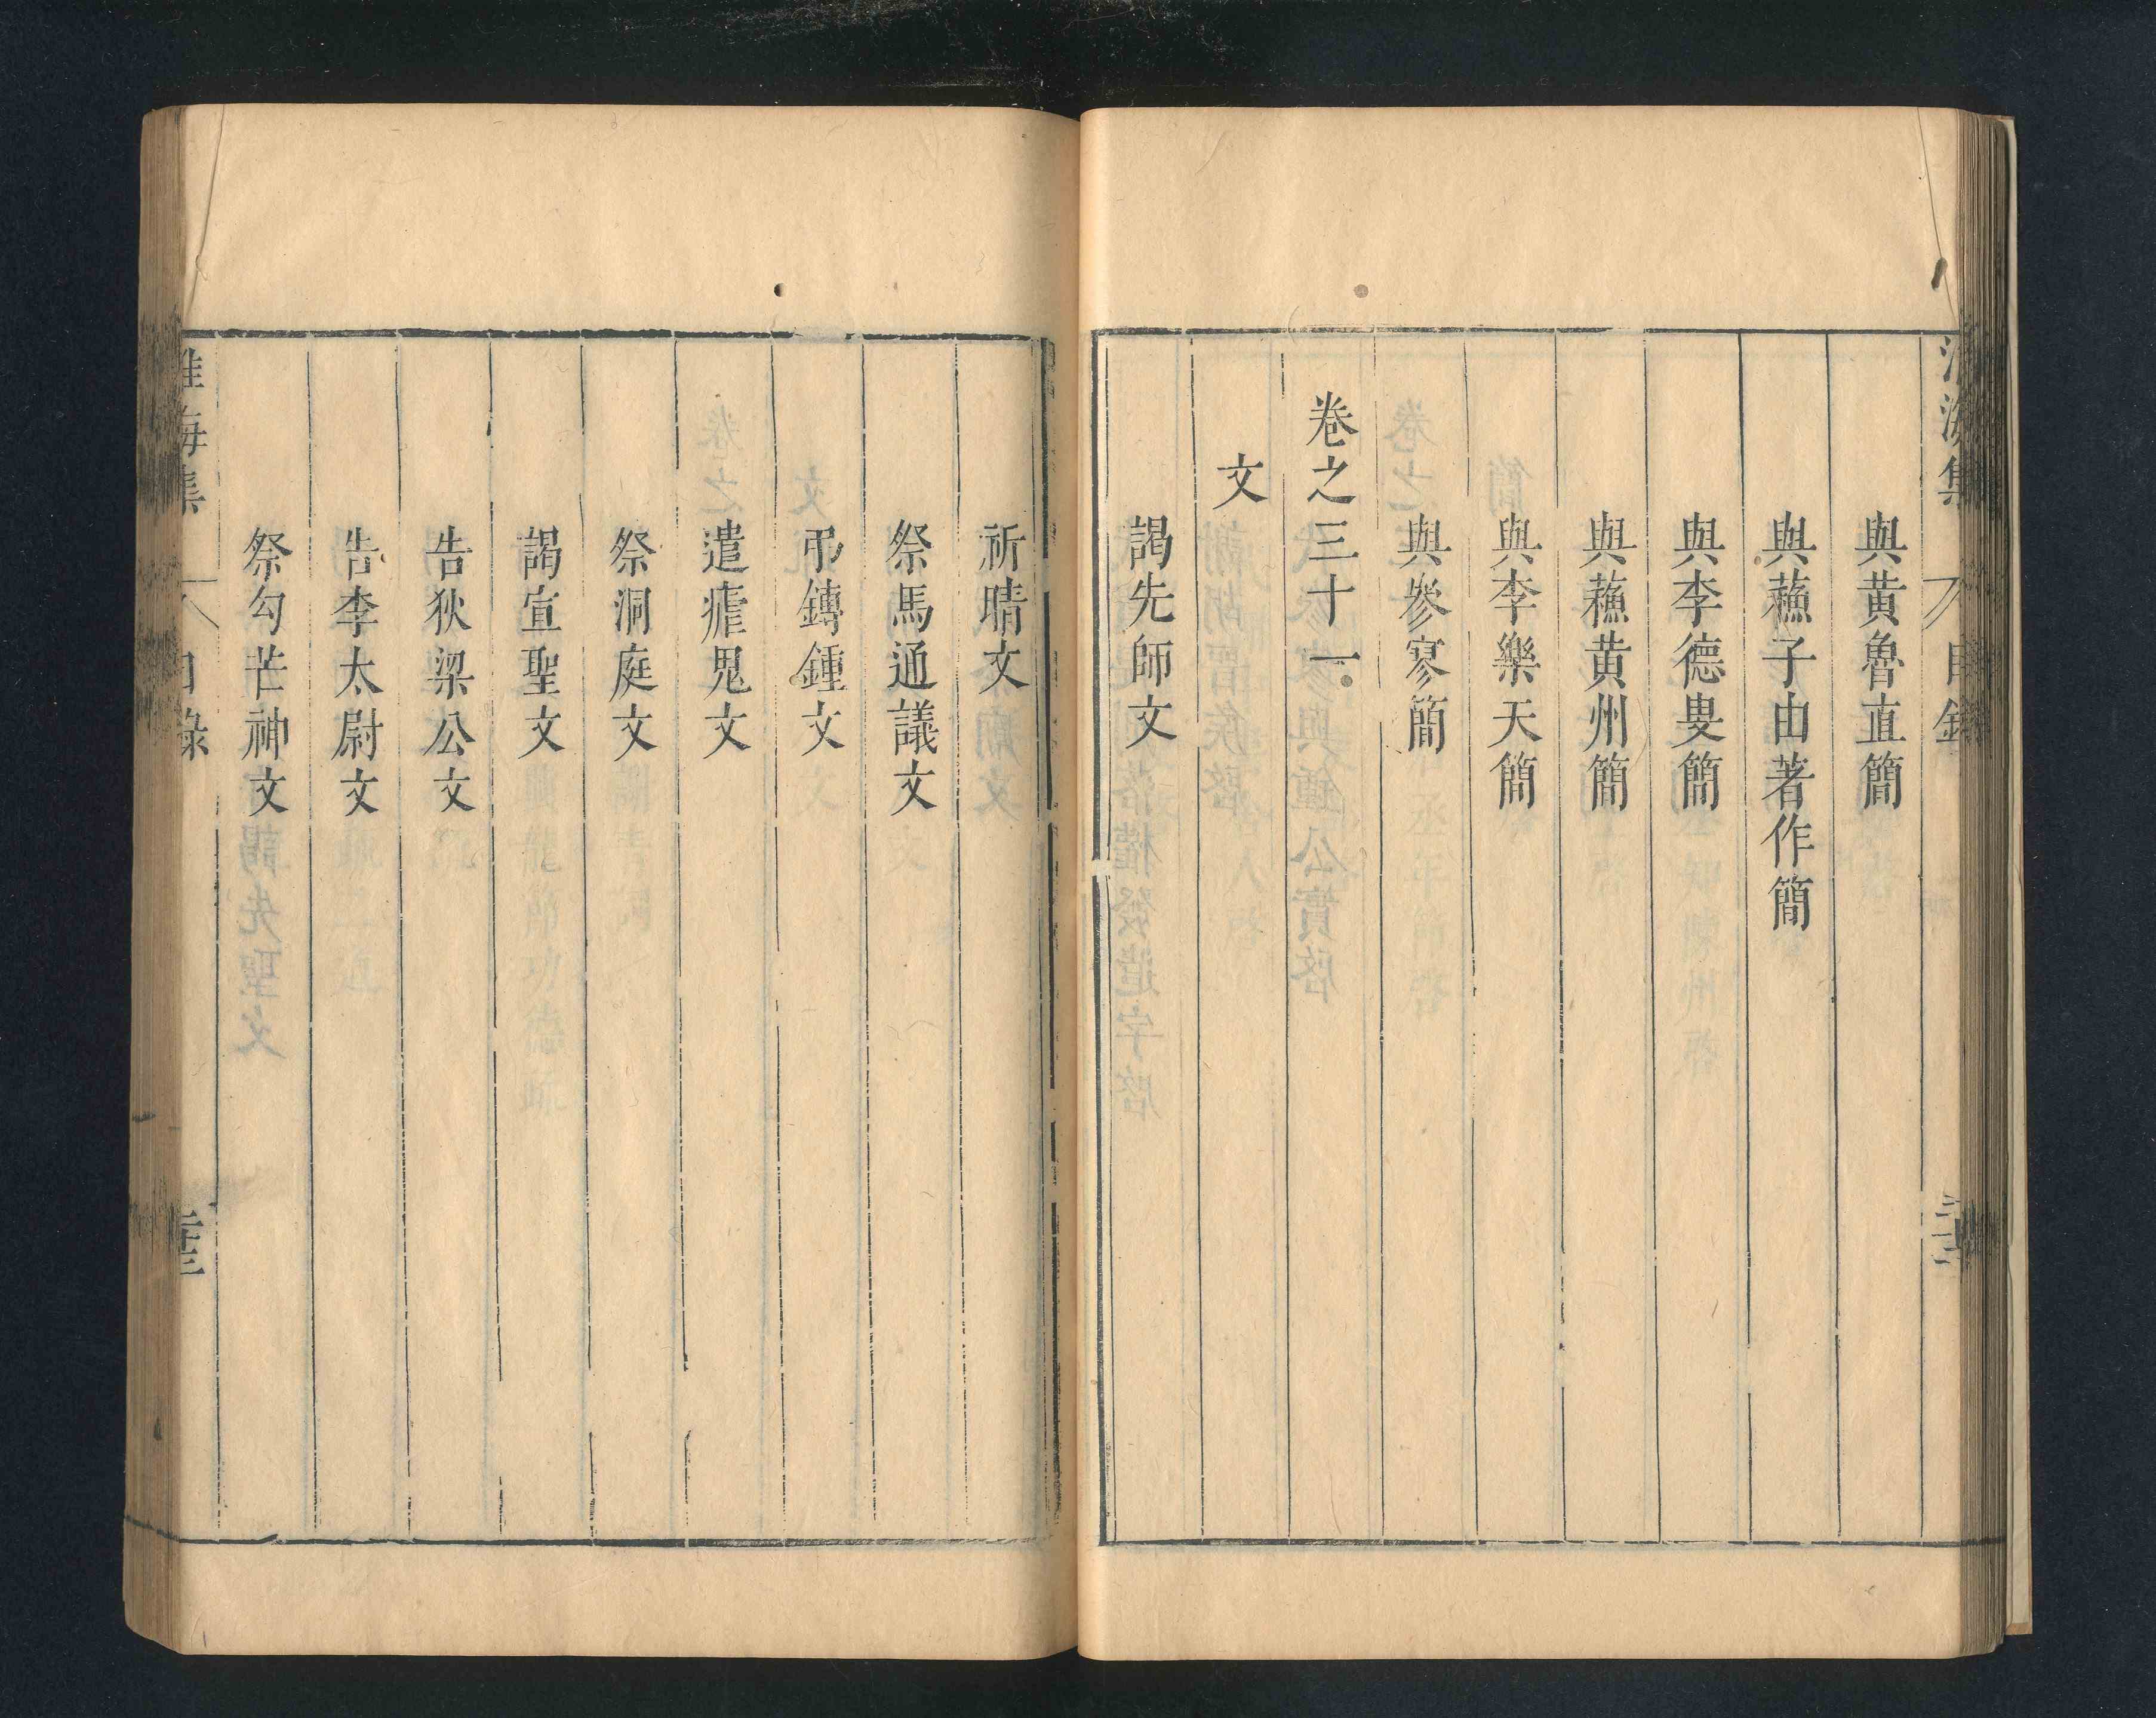 淮海集 目錄
與黃魯直簡
與蘓子由著作簡
與李德叟簡
與蘓黃州簡
與李樂天簡
與參寥簡
卷之三十一
文
謁先師文
祈晴文
祭馬通議文
弔鏄鍾文
遣瘧鬼文
祭洞庭文
謁宣聖文
告狄梁公文
告李太尉文
祭勾芒神文
淮海集 目錄